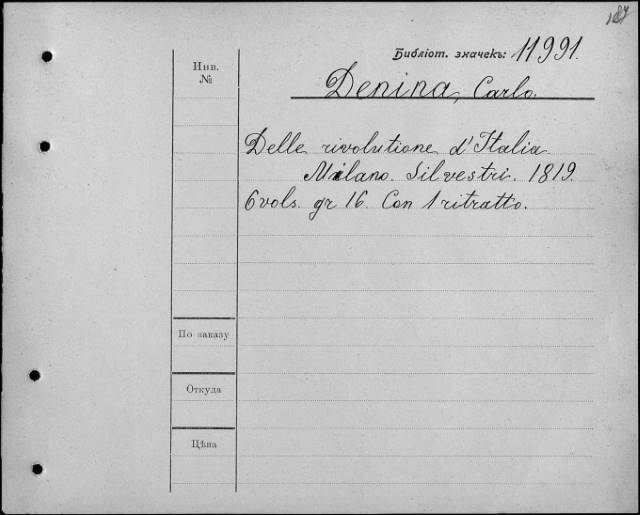 187
Библіот. значекъ: 11991.
Инв.
№
Denina, Carlo.
Delle rivolutione d'Italia
Milano. Silvestri. 1819.
6 vols. gr 16. Con 1 ritratto.
По заказу
Откуда
Цѣна